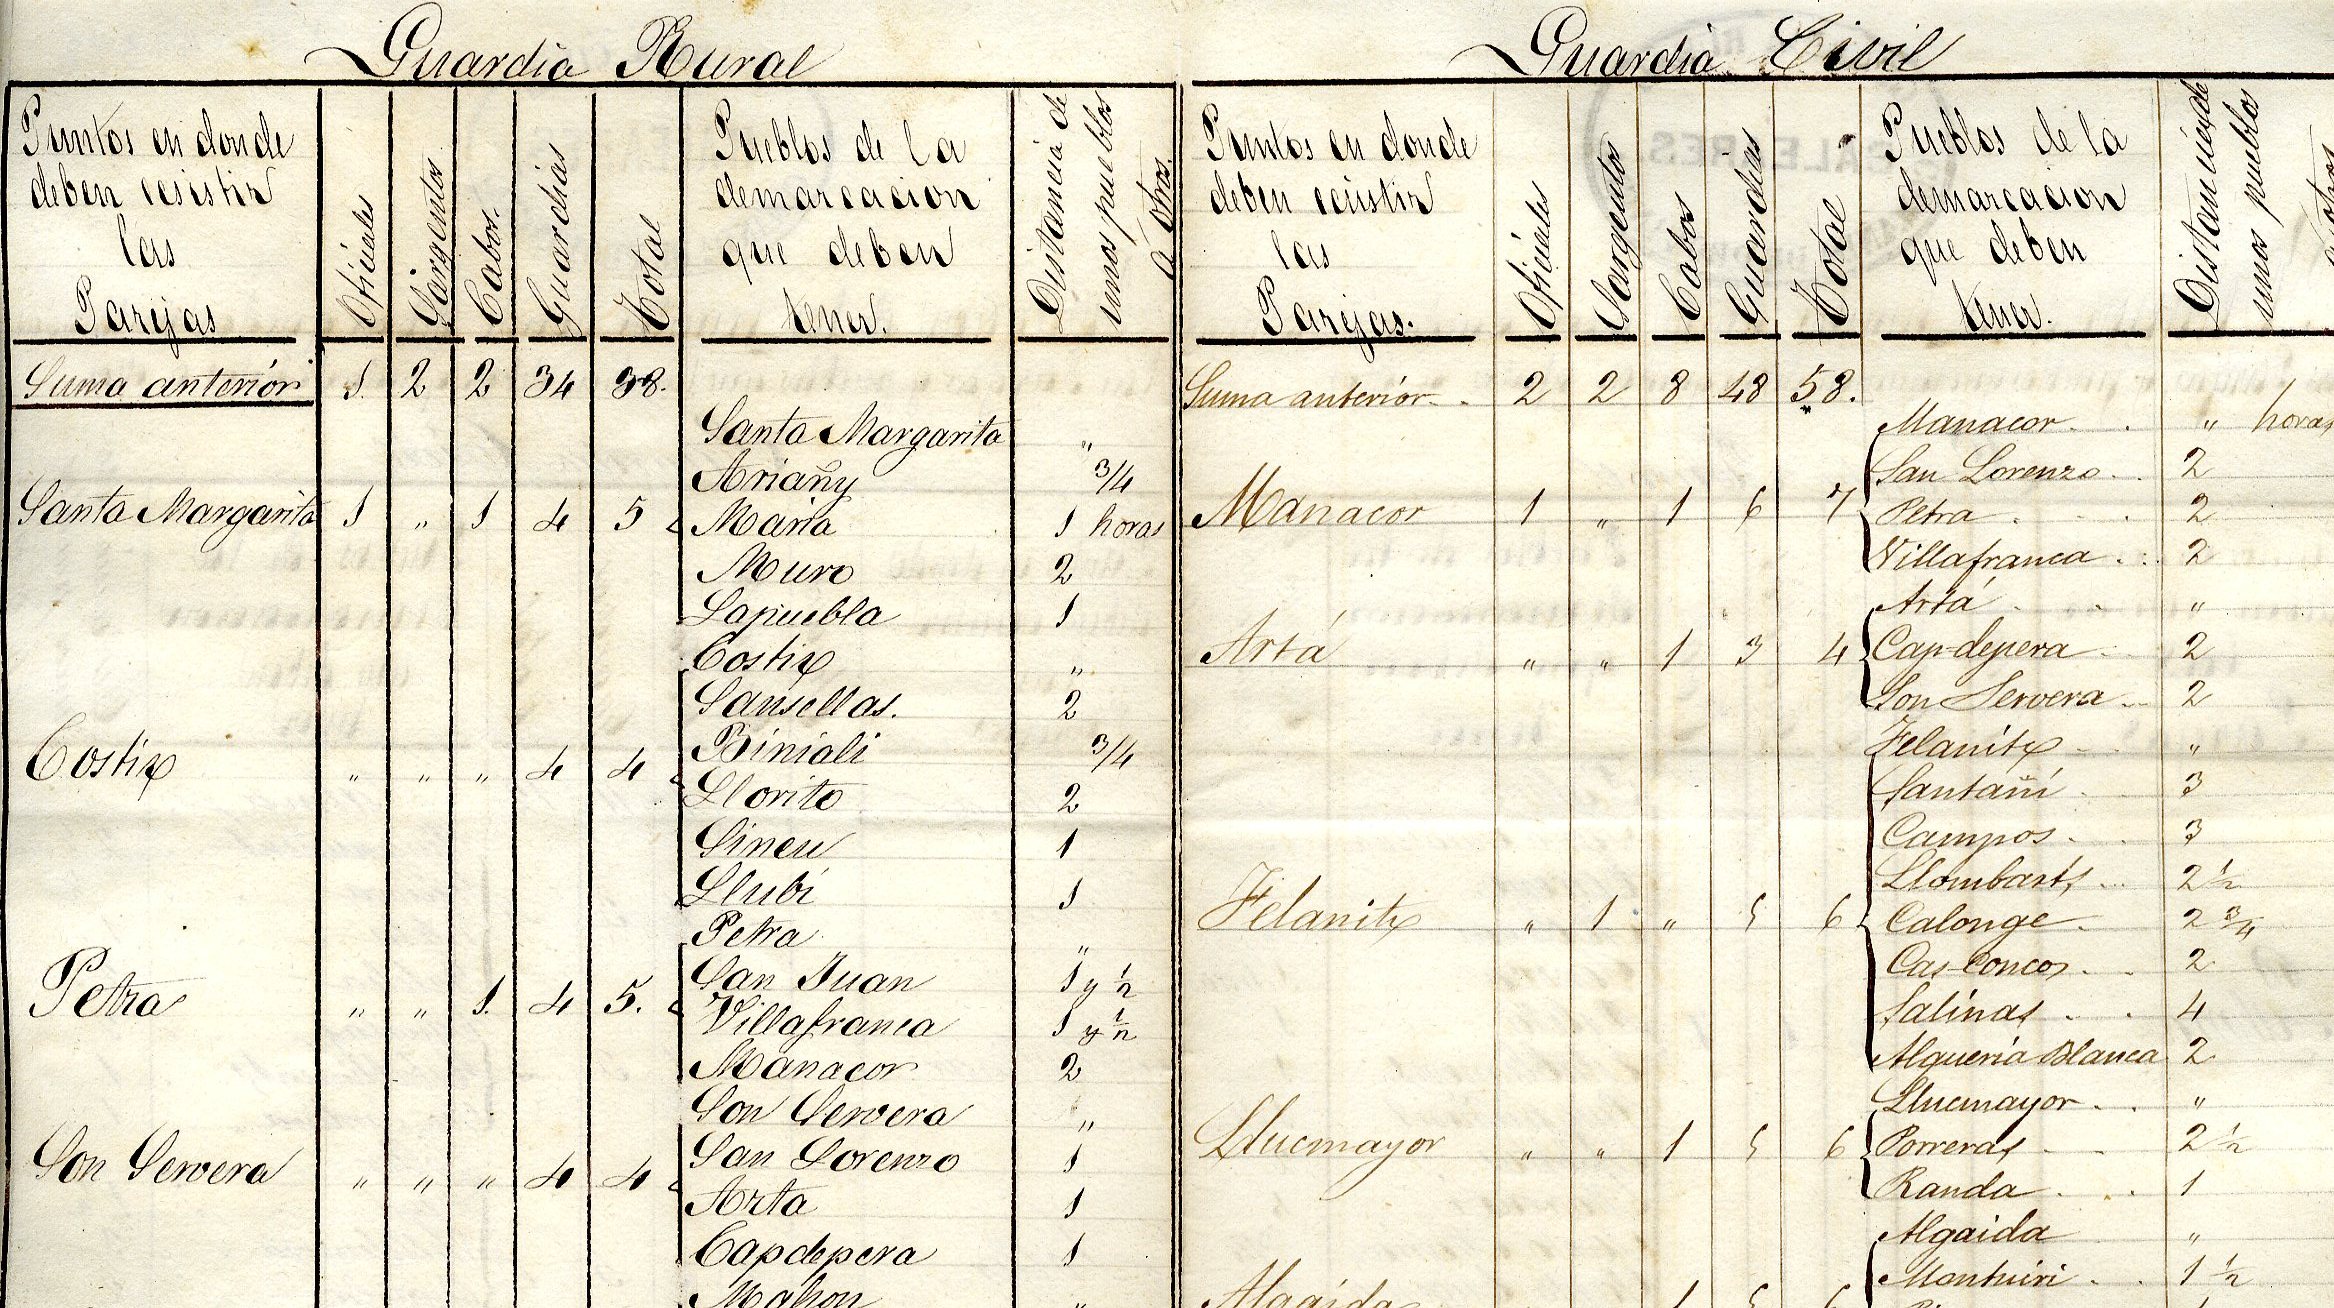 Guardia Rural
Puntos en donde deben ecsistir las Parejas | Oficiales | Sargentos | Cabos. | Guardias | Total | Pueblos de la demarcacion que deben tener. | Distancia de unos pueblos a otros.
Suma anterior | 1. | 2 | 2 | 34 | 38.
Santa Margarita | "
Ariañy | 3/4
Santa Margarita | 1 | " | 1 | 4 | 5 | Maria | 1 horas
Muro | 2
Lapuebla | 1
Costix | "
Sansellas. | 2
Biniali | 3/4
Costix | " | " | " | 4 | 4 | Llorito | 2
Sineu | 1
Llubí | 1
Petra | "
San Juan | 1 y 1/2
Petra | " | " | 1. | 4 | 5. | Villafranca | 1 y 1/2
Manacor | 2
Son Servera | "
San Lorenzo | 1
Son Servera | " | " | " | 4 | 4 | Arta | 1
Capdepera | 1
Mahon | "
Guardia Civil
Puntos en donde deben ecsistir las Parejas. | Oficiales | Sargentos | Cabos | Guardias | Total | Pueblos de la demarcacion que deben tener. | Distancia de unos pueblos a otros
Suma anterior | 2 | 2 | 8 | 48 | 58.
Manacor | " horas
San Lorenzo | 2
Manacor | 1 | " | 1 | 6 | 7 | Petra | 2
Villafranca | 2
Artá | "
Artá | " | " | 1 | 3 | 4 | Cap-depera | 2
Son Servera | 2
Felanitx | "
Santañí | 3
Campos | 3
Llombarts | 2 1/2
Felanitx | " | 1 | " | 5 | 6 | Calonge | 2 3/4
Cas-Concos | 2
Salinas | 4
Alqueria Blanca | 2
Lluemayor | "
Lluemayor | " | " | 1 | 5 | 6 | Porreras | 2 1/2
Randa | 1
Algaida | "
Montuiri | 1 1/2
Algaida | 1 | 5 | 6